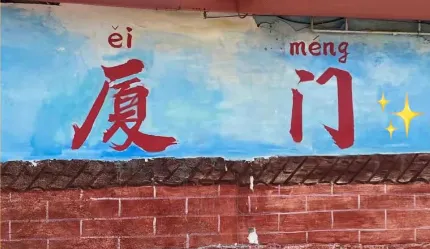 ěi méng
厦 门